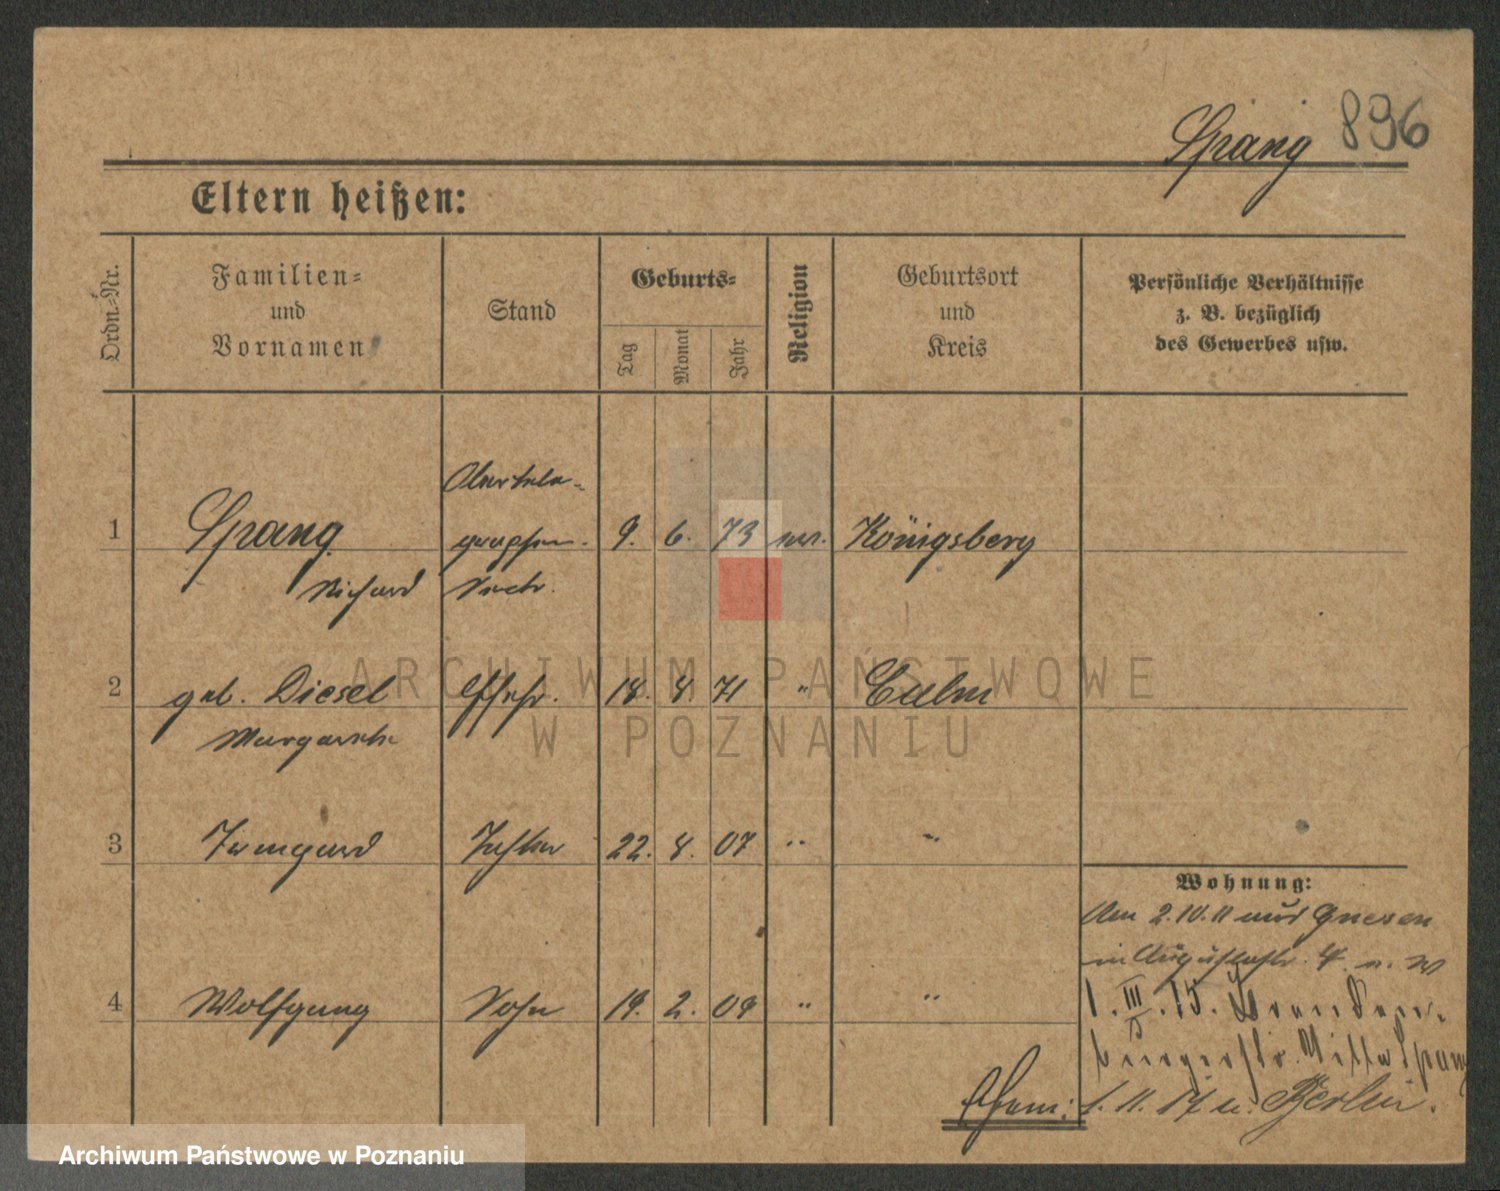 Spang 896
Eltern heißen:
Ordn.-Nr.
Familien-
und
Vornamen
Stand
Geburts-
Tag
Monat
Jahr
Religion
Geburtsort
und
Kreis
Persönliche Verhältnisse
z. B. bezüglich
des Gewerbes usw.
Obertele-
1 Spang graphen- 9. 6. 73 ev. Königsberg
Richard Secr.
2 geb. Diesel Ehefr. 18. 8. 71 " Culm
Margarete
3 Irmgard Tochter 22. 8. 07 " "
Wohnung:
Am 2.10.11 aus Gnesen
in Augustastr. 4
4 Wolfgang Sohn 19. 2. 09 " "
1. III. 15.
Villa Spang
Ehem: 1. 11. 17 n. Berlin.
ARCHIWUM PAŃSTWOWE
W POZNANIU
Archiwum Państwowe w Poznaniu